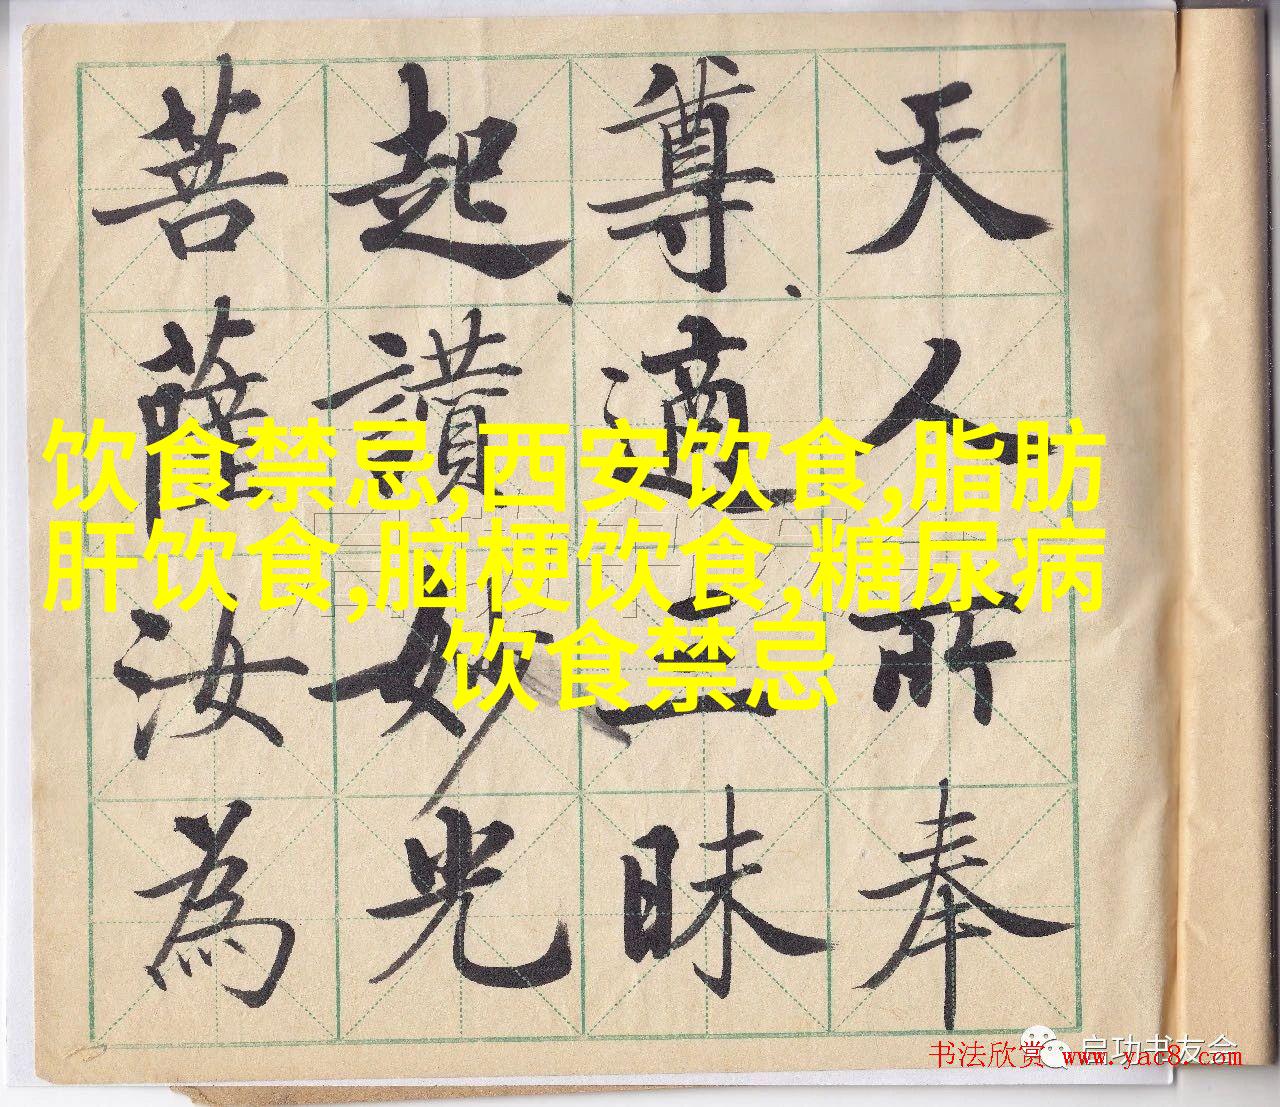 天人所奉
尊適三昧
起讃妙光
菩薩汝為
饮食禁忌,西安饮食,脂肪
肝饮食,脑梗饮食,糖尿病
饮食禁忌
启功书友会
书法欣赏 www.yac8.com